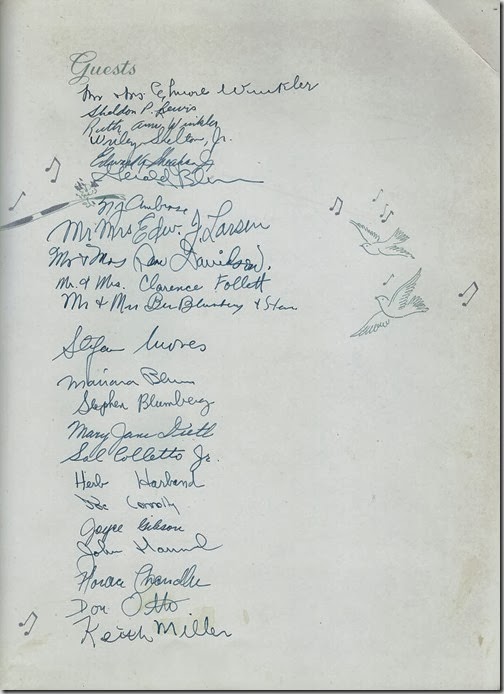 Guests
Mr & Mrs. Elmore Winkler
Sheldon P. Lewis
Ruth Ann Winkler
Wriley Shelton, Jr.
Edward
Gerald Blum
Ambrose
Mr Mrs Edw. J. Larsen
Mr & Mrs Davidson.
Mr. & Mrs. Clarence Follett
Mr & Mrs Ben Blumberg &
Stefan
Mariana Blum
Stephen Blumberg
Mary Jane
Sal Colletto Jr.
Herb Harband
Joe Connolly
Joyce Gibson
John
Horace Chandler
Don Otto
Keith Miller